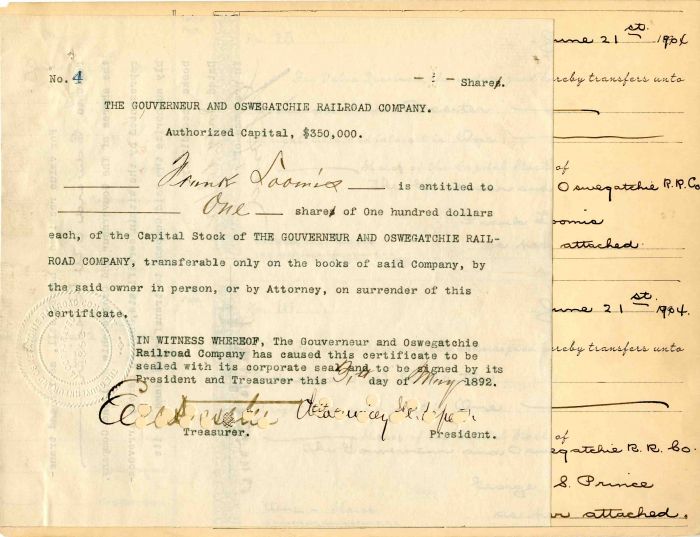 No. 4 - 1 - Shares.
THE GOUVERNEUR AND OSWEGATCHIE RAILROAD COMPANY.
Authorized Capital, $350,000.
Frank Loomis is entitled to
One shares of One hundred dollars
each, of the Capital Stock of THE GOUVERNEUR AND OSWEGATCHIE RAIL-
ROAD COMPANY, transferable only on the books of said Company, by
the said owner in person, or by Attorney, on surrender of this
certificate.
IN WITNESS WHEREOF, The Gouverneur and Oswegatchie
Railroad Company has caused this certificate to be
sealed with its corporate seal and to be signed by its
President and Treasurer this day of May 1892.
Treasurer. President.
June 21st 1904
hereby transfers unto
of
Oswegatchie R.R. Co
Loomis
attached.
June 21st 1904.
hereby transfers unto
of
Oswegatchie R. R. Co.
S. Prince
attached.